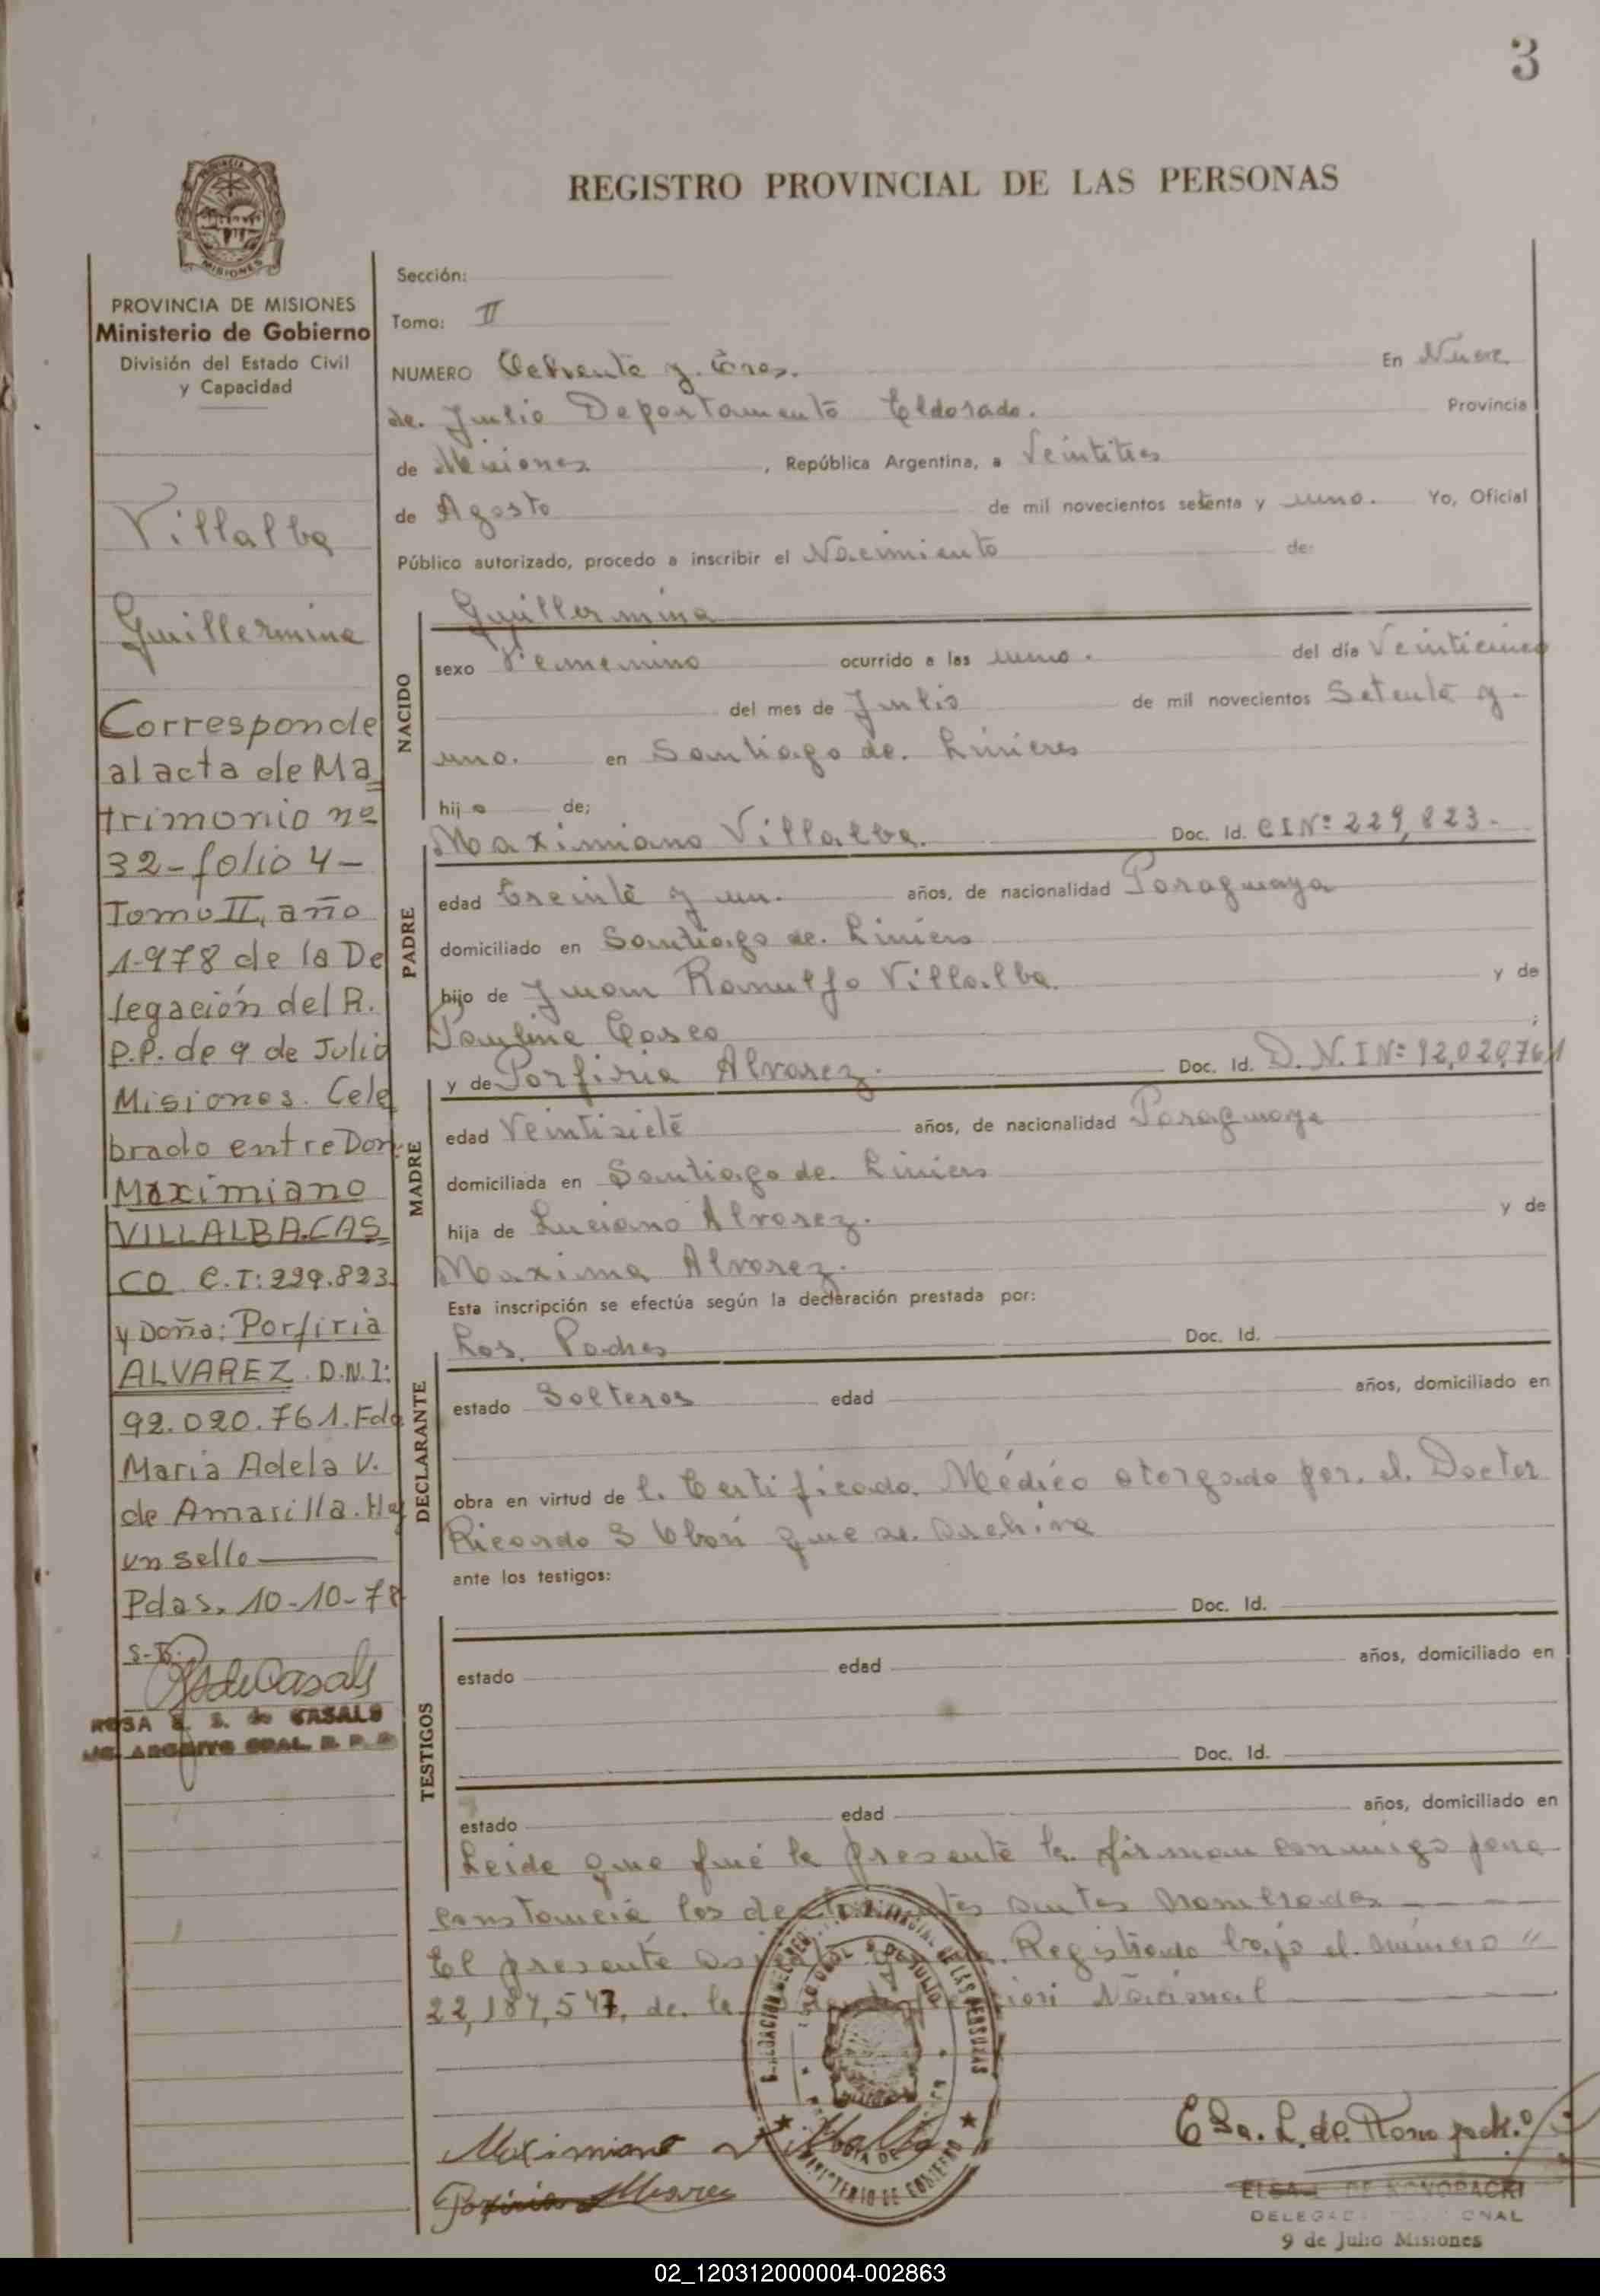 3
REGISTRO PROVINCIAL DE LAS PERSONAS
MISIONES
PROVINCIA DE MISIONES
Ministerio de Gobierno
División del Estado Civil
y Capacidad
Villalba
Guillermina
Corresponde
al acta de Ma
trimonio nº
32-folio 4-
Tomo II, año
1978 de la De
legación del R.
P.P. de 9 de Julio
Misiones. Cele
brado entre Don
Maximiano
VILLALBA CAS
CO C.I: 229.823
y Doña: Porfiria
ALVAREZ. D.N.I:
92.020.761. Fdo
Maria Adela V.
de Amarilla. Hay
un sello
Pdas. 10-10-78
S-B.
ROSA E. S. de CASALS
Sección:
Tomo: II
NUMERO Ochenta y tres. En Nueve
de Julio Departamento Eldorado. Provincia
de Misiones , República Argentina, a Veintitres
de Agosto de mil novecientos setenta y uno. Yo, Oficial
Público autorizado, procedo a inscribir el Nacimiento de:
Guillermina
NACIDO
sexo Femenino ocurrido a las uno. del día Veinticinco
del mes de Julio de mil novecientos Setenta y
uno. en Santiago de. Linieres
hija de;
PADRE
Maximiano Villalba. Doc. Id. CI Nº 229,823-
edad treinta y un. años, de nacionalidad Paraguaya
domiciliado en Santiago de. Liniers
hijo de Juan Ranulfo Villalba. y de
Paulina Casco ;
MADRE
y de Porfiria Alvarez. Doc. Id. D.N.I Nº 92,020,761
edad Veintisiete años, de nacionalidad Paraguaya
domiciliada en Santiago de. Liniers
hija de Luciano Alvarez. y de
Maxima Alvarez.
Esta inscripción se efectúa según la declaración prestada por:
DECLARANTE
Los. Padres Doc. Id.
estado Solteros edad años, domiciliado en
obra en virtud de l. Certificado. Médico otorgado por. el. Doctor
Ricardo S que se. archiva
ante los testigos:
TESTIGOS
Doc. Id.
estado edad años, domiciliado en
Doc. Id.
estado edad años, domiciliado en
Leida que fué la presente la firman conmigo para
constancia los declarantes antes nombrados
El presente Registrado bajo el. número "
22,187,547, de. la Nacional
Maximiano Villalba
Porfiria Alvarez
Elsa. L. de. Konopacki
ELSA L. DE KONOPACKI
9 de Julio Misiones
02_120312000004-002863